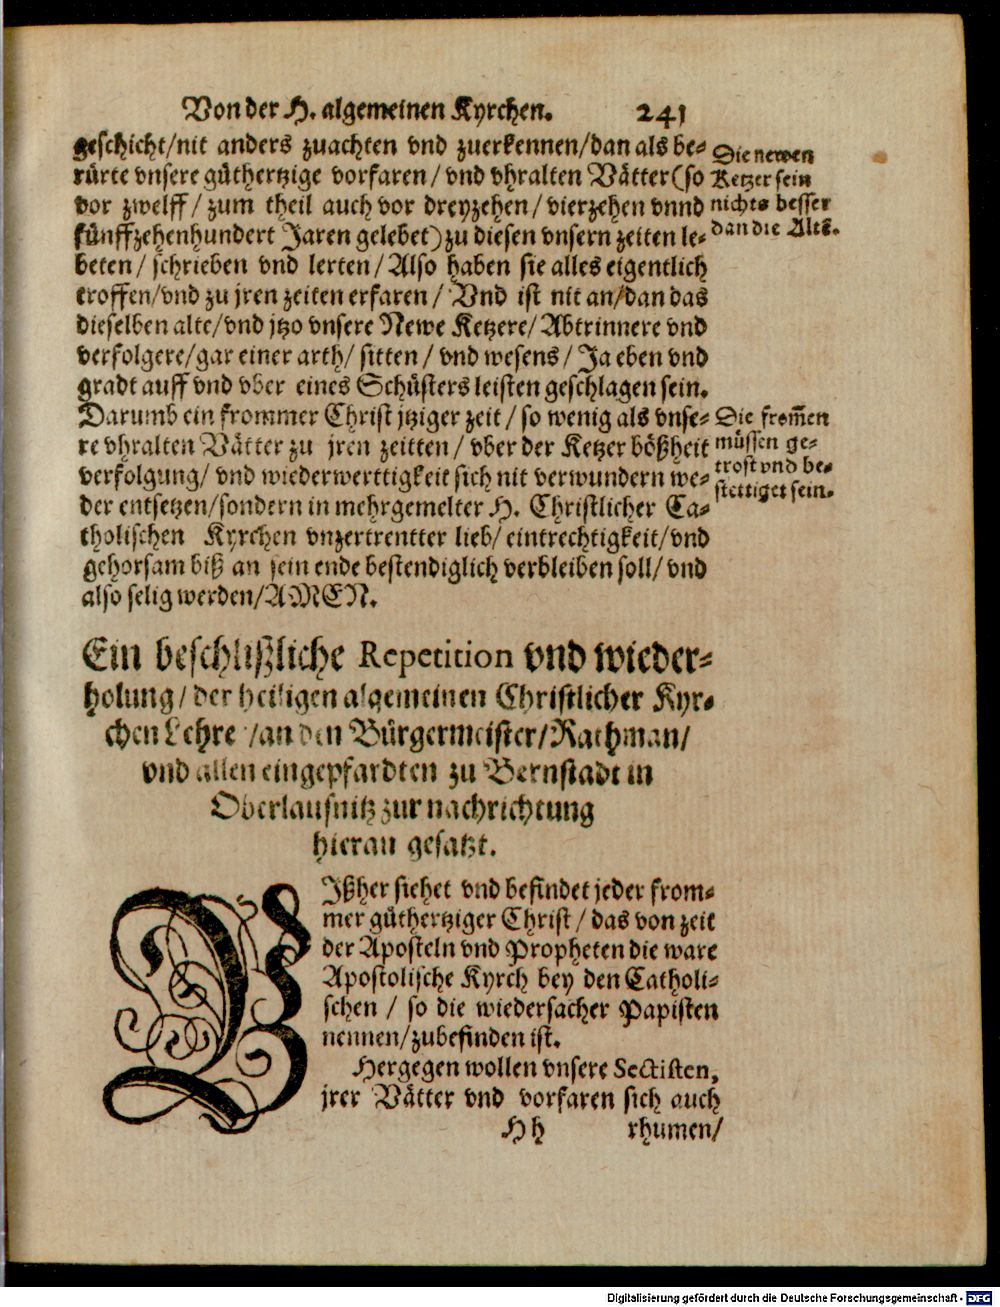 Von der H. algemeinen Kyrchen. 241
geschicht/nit anders zuachten vnd zuerkennen/dan als be-
rürte vnsere güthertzige vorfaren/ vnd vhralten Vätter(so
vor zwelff/ zum theil auch vor dreyzehen/ vierzehen vnnd
fünffzehenhundert Jaren gelebet) zu diesen vnsern zeiten le-
beten/ schrieben vnd lerten/ Also haben sie alles eigentlich
troffen/vnd zu jren zeiten erfaren/ Vnd ist nit an/dan das
dieselben alte/vnd jtzo vnsere Newe Ketzere/ Abtrinnere vnd
verfolgere/gar einer arth/ sitten/ vnd wesens/ Ja eben vnd
gradt auff vnd vber eines Schüsters leisten geschlagen sein.
Darumb ein frommer Christ jtziger zeit/ so wenig als vnse-
re vhralten Vätter zu jren zeitten/ vber der Ketzer bößheit
verfolgung/ vnd wiederwerttigkeit sich nit verwundern we-
der entsetzen/sondern in mehrgemelter H. Christlicher Ca-
tholischen Kyrchen vnzertrentter lieb/ eintrechtigkeit/vnd
gehorsam biß an sein ende bestendiglich verbleiben soll/ vnd
also selig werden/AMEN.
Die newen
Ketzer sein
nichts besser
dan die Altē.
Die from̄en
müssen ge-
trost vnd be-
stettiget sein.
Ein beschlißliche Repetition vnd wieder-
holung/ der heiligen algemeinen Christlicher Kyr-
chen Lehre /an den Bürgermeister/Rathman/
vnd allen eingepfardten zu Bernstadt in
Oberlausnitz zur nachrichtung
hieran gesatzt.
BIßher siehet vnd befindet jeder from-
mer güthertziger Christ/ das von zeit
der Aposteln vnd Propheten die ware
Apostolische Kyrch bey den Catholi-
schen / so die wiedersacher Papisten
nennen/zubefinden ist.
Hergegen wollen vnsere Sectisten,
jrer Vätter vnd vorfaren sich auch
Hh rhumen/
Digitalisierung gefördert durch die Deutsche Forschungsgemeinschaft - DFG